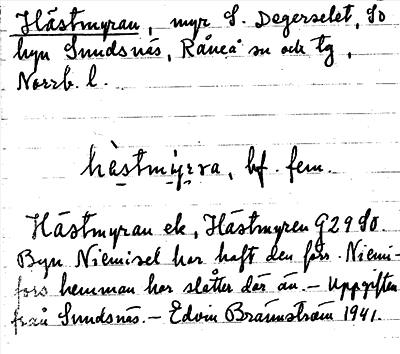 Hästmyran, myr S. Degerselet, SO
byn Sundsnäs, Råneå sn och tg,
Norrb. l.
hästmyrra, bf. fem.
Hästmyran ek, Hästmyren G29 SO.
Byn Niemisel har haft den förr. Niemi-
fors hemman har slåtter där än. — Uppgiften
från Sundsnäs. — Edvin Brännström 1941.